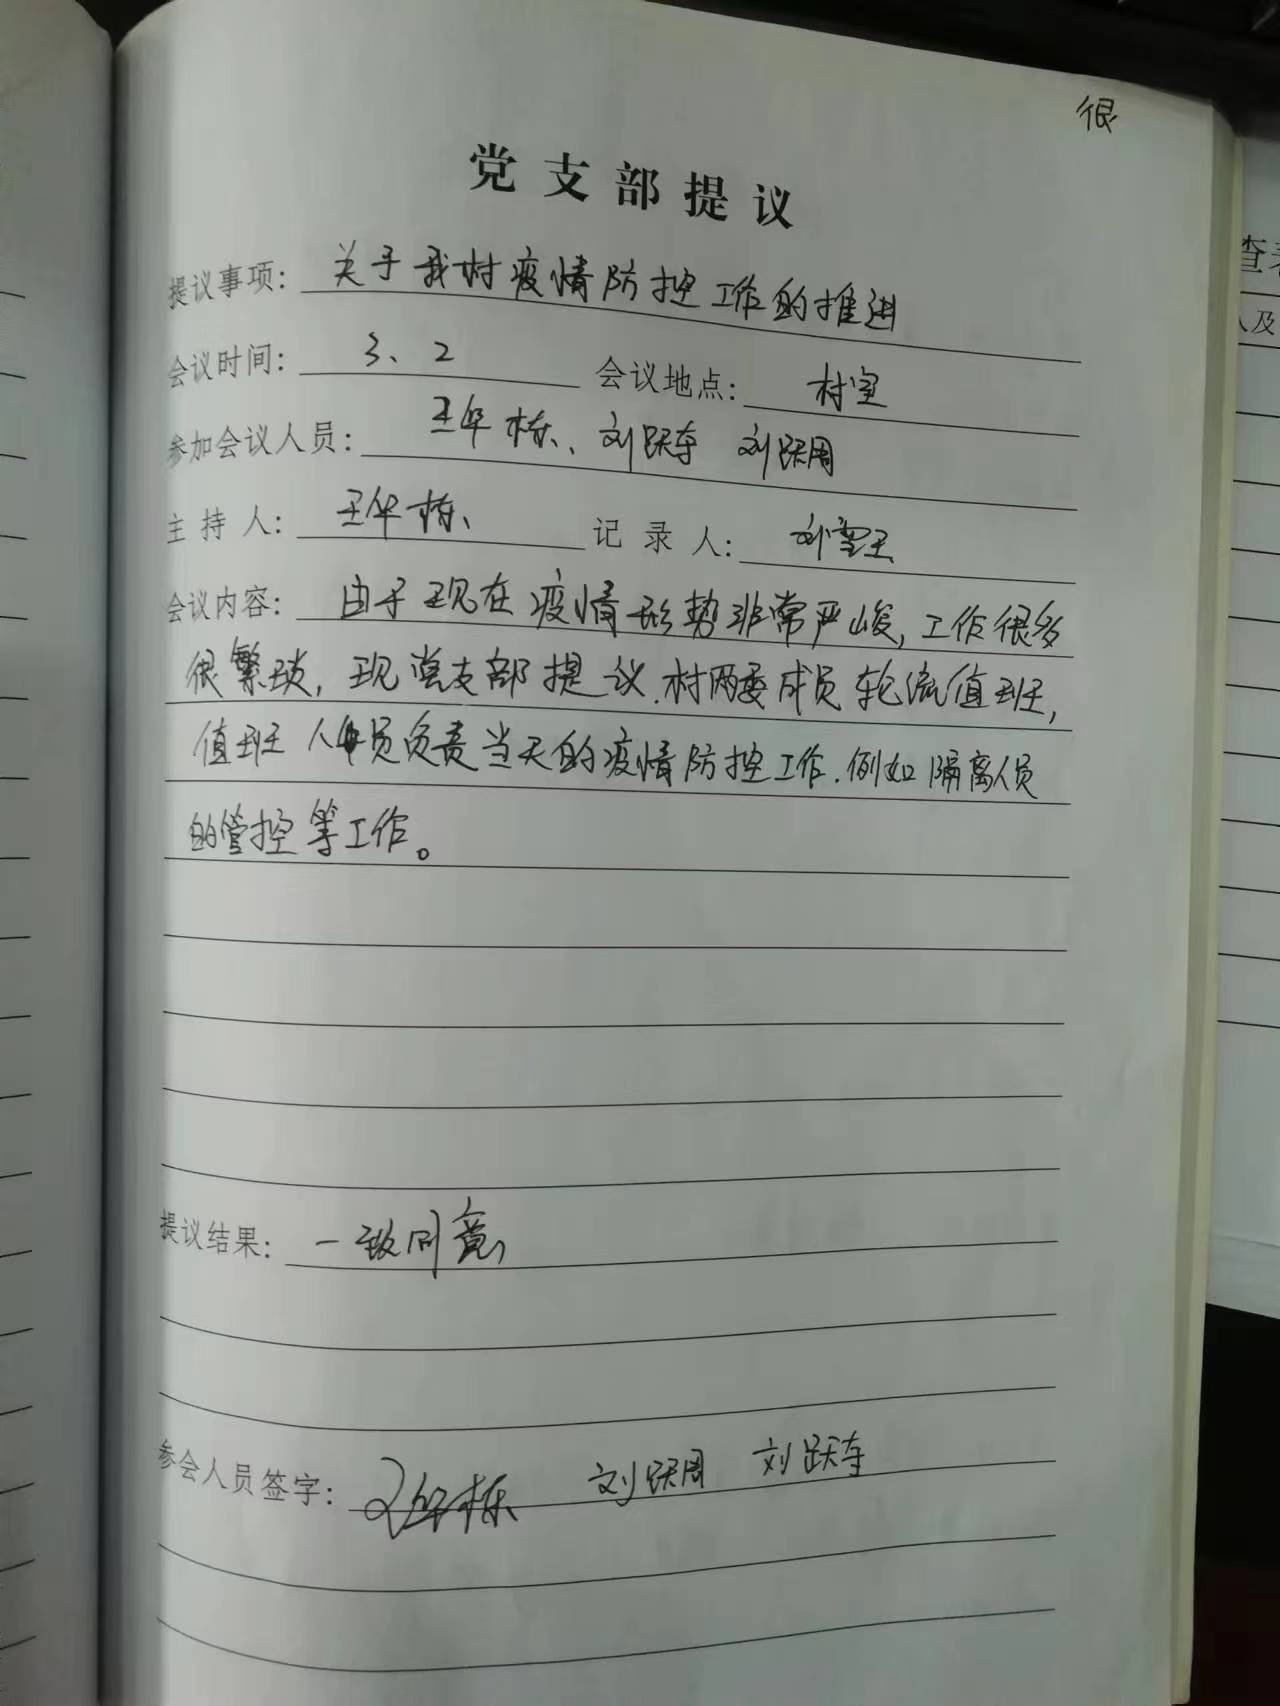 很
党支部提议
提议事项: 关于我村疫情防控工作的推进
会议时间: 3、2 会议地点: 村室
参加会议人员: 王华栋、刘跃夺 刘跃周
主持人: 王华栋、 记录人: 刘雪玉
会议内容: 由于现在疫情形势非常严峻,工作很多
很繁琐,现党支部提议.村两委成员轮流值班,
值班人员负责当天的疫情防控工作.例如隔离人员
的管控等工作。
提议结果: 一致同意
参会人员签字: 王华栋 刘跃周 刘跃夺
查
人及